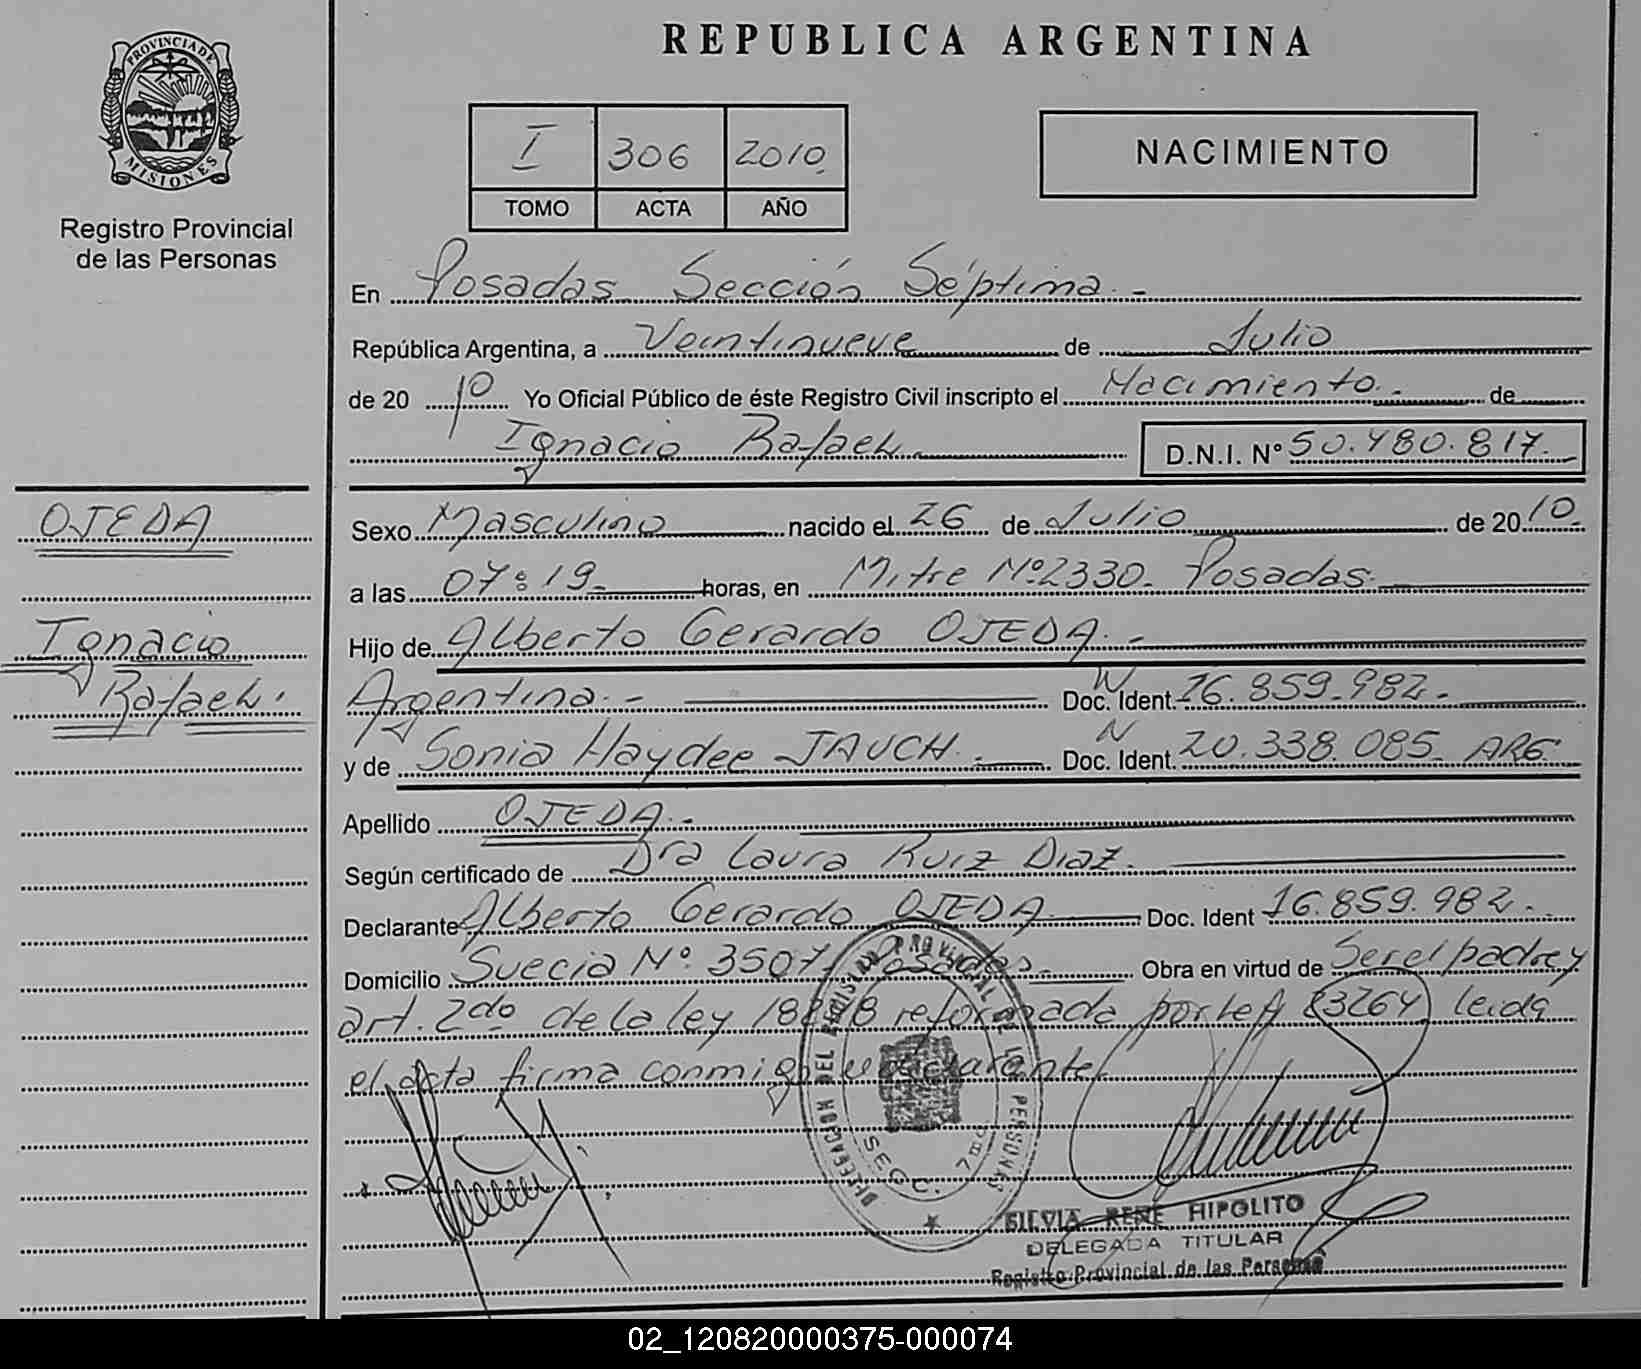 REPUBLICA ARGENTINA
PROVINCIA DE MISIONES
Registro Provincial
de las Personas
I 306 2010
TOMO ACTA AÑO
NACIMIENTO
En Posadas Sección Séptima.-
República Argentina, a Veintinueve de Julio
de 20 10 Yo Oficial Público de éste Registro Civil inscripto el Nacimiento.- de
Ignacio Rafael. D.N.I. Nº 50.480.817.-
OJEDA
Ignacio
Rafael.
Sexo Masculino nacido el 26 de Julio de 20 10.
a las 07:19 horas, en Mitre Nº 2330. Posadas.
Hijo de Alberto Gerardo OJEDA.-
Argentina.- Doc. Ident. 16.859.982.-
y de Sonia Haydee JAUCH.- Doc. Ident. 20.338.085 ARG.
Apellido OJEDA.-
Según certificado de Dra Laura Ruiz Diaz.
Declarante Alberto Gerardo OJEDA Doc. Ident 16.859.982.-
Domicilio Suecia Nº 3507 Posadas. Obra en virtud de Ser el padre y
art. 2do de la ley 18248 reformada por 23264 leida
el acta firma conmigo declarante
DELEGACION DEL REGISTRO PROVINCIAL DE LAS PERSONAS
SECC. 7ma
SILVIA RENE HIPOLITO
DELEGADA TITULAR
Registro Provincial de las Personas
02_120820000375-000074